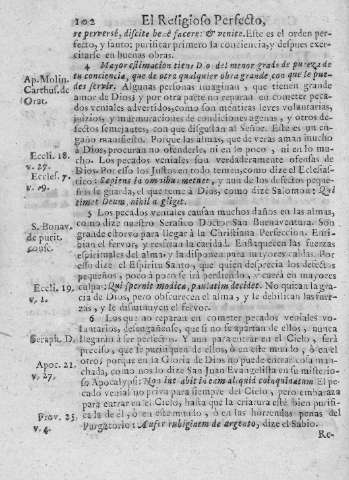 102 El Religioso Perfecto,
se perversè, discite benè facere: & venite. Este es el orden per-
fecto, y santo: purificar primero la conciencia, y despues exer-
citarse en buenas obras.
4 Mayor estimacion tiene Dios del menor grado de pureza de
Ap. Molin. tu conciencia, que de otra qualquier obra grande con que le pue-
Carthus. de des servir. Algunas personas imaginan, que tienen grande
Orat. amor de Dios; y por otra parte no reparan en cometer peca-
dos veniales advertidos, como son mentiras leves voluntarias,
juizios, y murmuraciones de condiciones agenas, y otros de-
fectos semejantes, con que disgustan al Señor. Este es un en-
gaño manifiesto. Porque el que de veras aman mucho
Eccli. 18. à Dios, procuran no ofenderle, ni en lo poco, ni en lo mu-
v. 27. cho. Los pecados veniales son verdaderamente ofensas de
Eccles. 7. Dios. Por esso los Justos en todo temen, como dize el Eclesias-
v. 19. tico: Sapiens in omnibus metuet, y aun de los defectos peque-
ños se guarda, el que teme à Dios, como dize Salomon: Qui
timet Deum, nihil negliget.
5 Los pecados veniales causan muchos daños en las almas,
S. Bonav. como dize nuestro Serafico Doctor San Buenaventura. Son
de purit. grande estorvo para llegar à la Christiana Perfeccion. Enfria-
consc. ban el fervor, y resfrian la caridad. Enflaquecen las fuerzas
espirituales del alma: y la disponen para mayores caidas. Por
esso dize el Espiritu Santo, que quien desprecia los defectos
pequeños, poco à poco se irà perdiendo, y caerà en mayores
Eccli. 19. culpas: Qui spernit modica, paulatim decidet. No quitan la gra-
v. 1. cia de Dios, pero obscurecen el alma, y le debilitan las fuer-
zas, y le disminuyen el fervor.
6 Los que no reparan en cometer pecados veniales vo-
luntarios, desengañense, que si no se apartan de ellos, nunca
Seraph. D. llegaràn à ser perfectos. Y aun para entrar en el Cielo, serà
preciso, que le purifiquen de ellos, ò en este mundo, ò en el
Apoc. 21. otro; porque en la Gloria de Dios no puede entrar cosa man-
v. 27. chada, como nos lo dize San Juan Evangelista en su misterio-
so Apocalypsi: Non intrabit in eam aliquid coinquinatum. El pe-
cado venial no priva para siempre del Cielo, pero embaraza
para entrar en el Cielo, hasta que la criatura estè bien purifi-
Prov. 25. cada de él, ò en este mundo, ò en las horrendas penas del
v. 4. Purgatorio: Aufer rubiginem de argento, dize el Sabio.
Re-